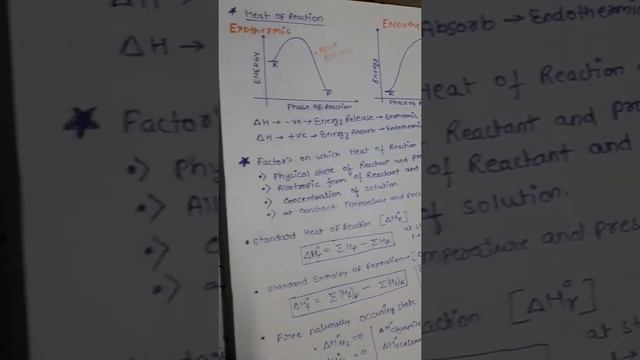 * Heat of Reaction
EXothermic
ENdothe
ENERGY
Energy
R
P
R
Heat Release
Phase of Reaction
Phase of
ΔH → -ve → Energy Release → Exothermic
ΔH → +ve → Energy Absorb → Endothermic
* Factor's on which Heat of Reaction
•> Physical state of Reactant and pro
•> Allotropic form of Reactant and
•> Concentration of solution.
•> at constant Temperature and press
• Standard Heat of Reaction [ΔH°r]
ΔH°r = Σ HP - Σ HR
at st
• Standard Enthalpy of Formation → [
ΔH°r = Σ(H°f)P - Σ(H°f)R
• Free naturally occuring state
• ΔH°N2 = 0
ΔH°graphite
= 0
★ Factor's
•> Phy
•> Allo
•> C
•> a
Absorb → Endothermic
Heat of Reaction
Reactant and pro
of Reactant and
of solution.
mperature and pres
action [ΔH°r]
at st